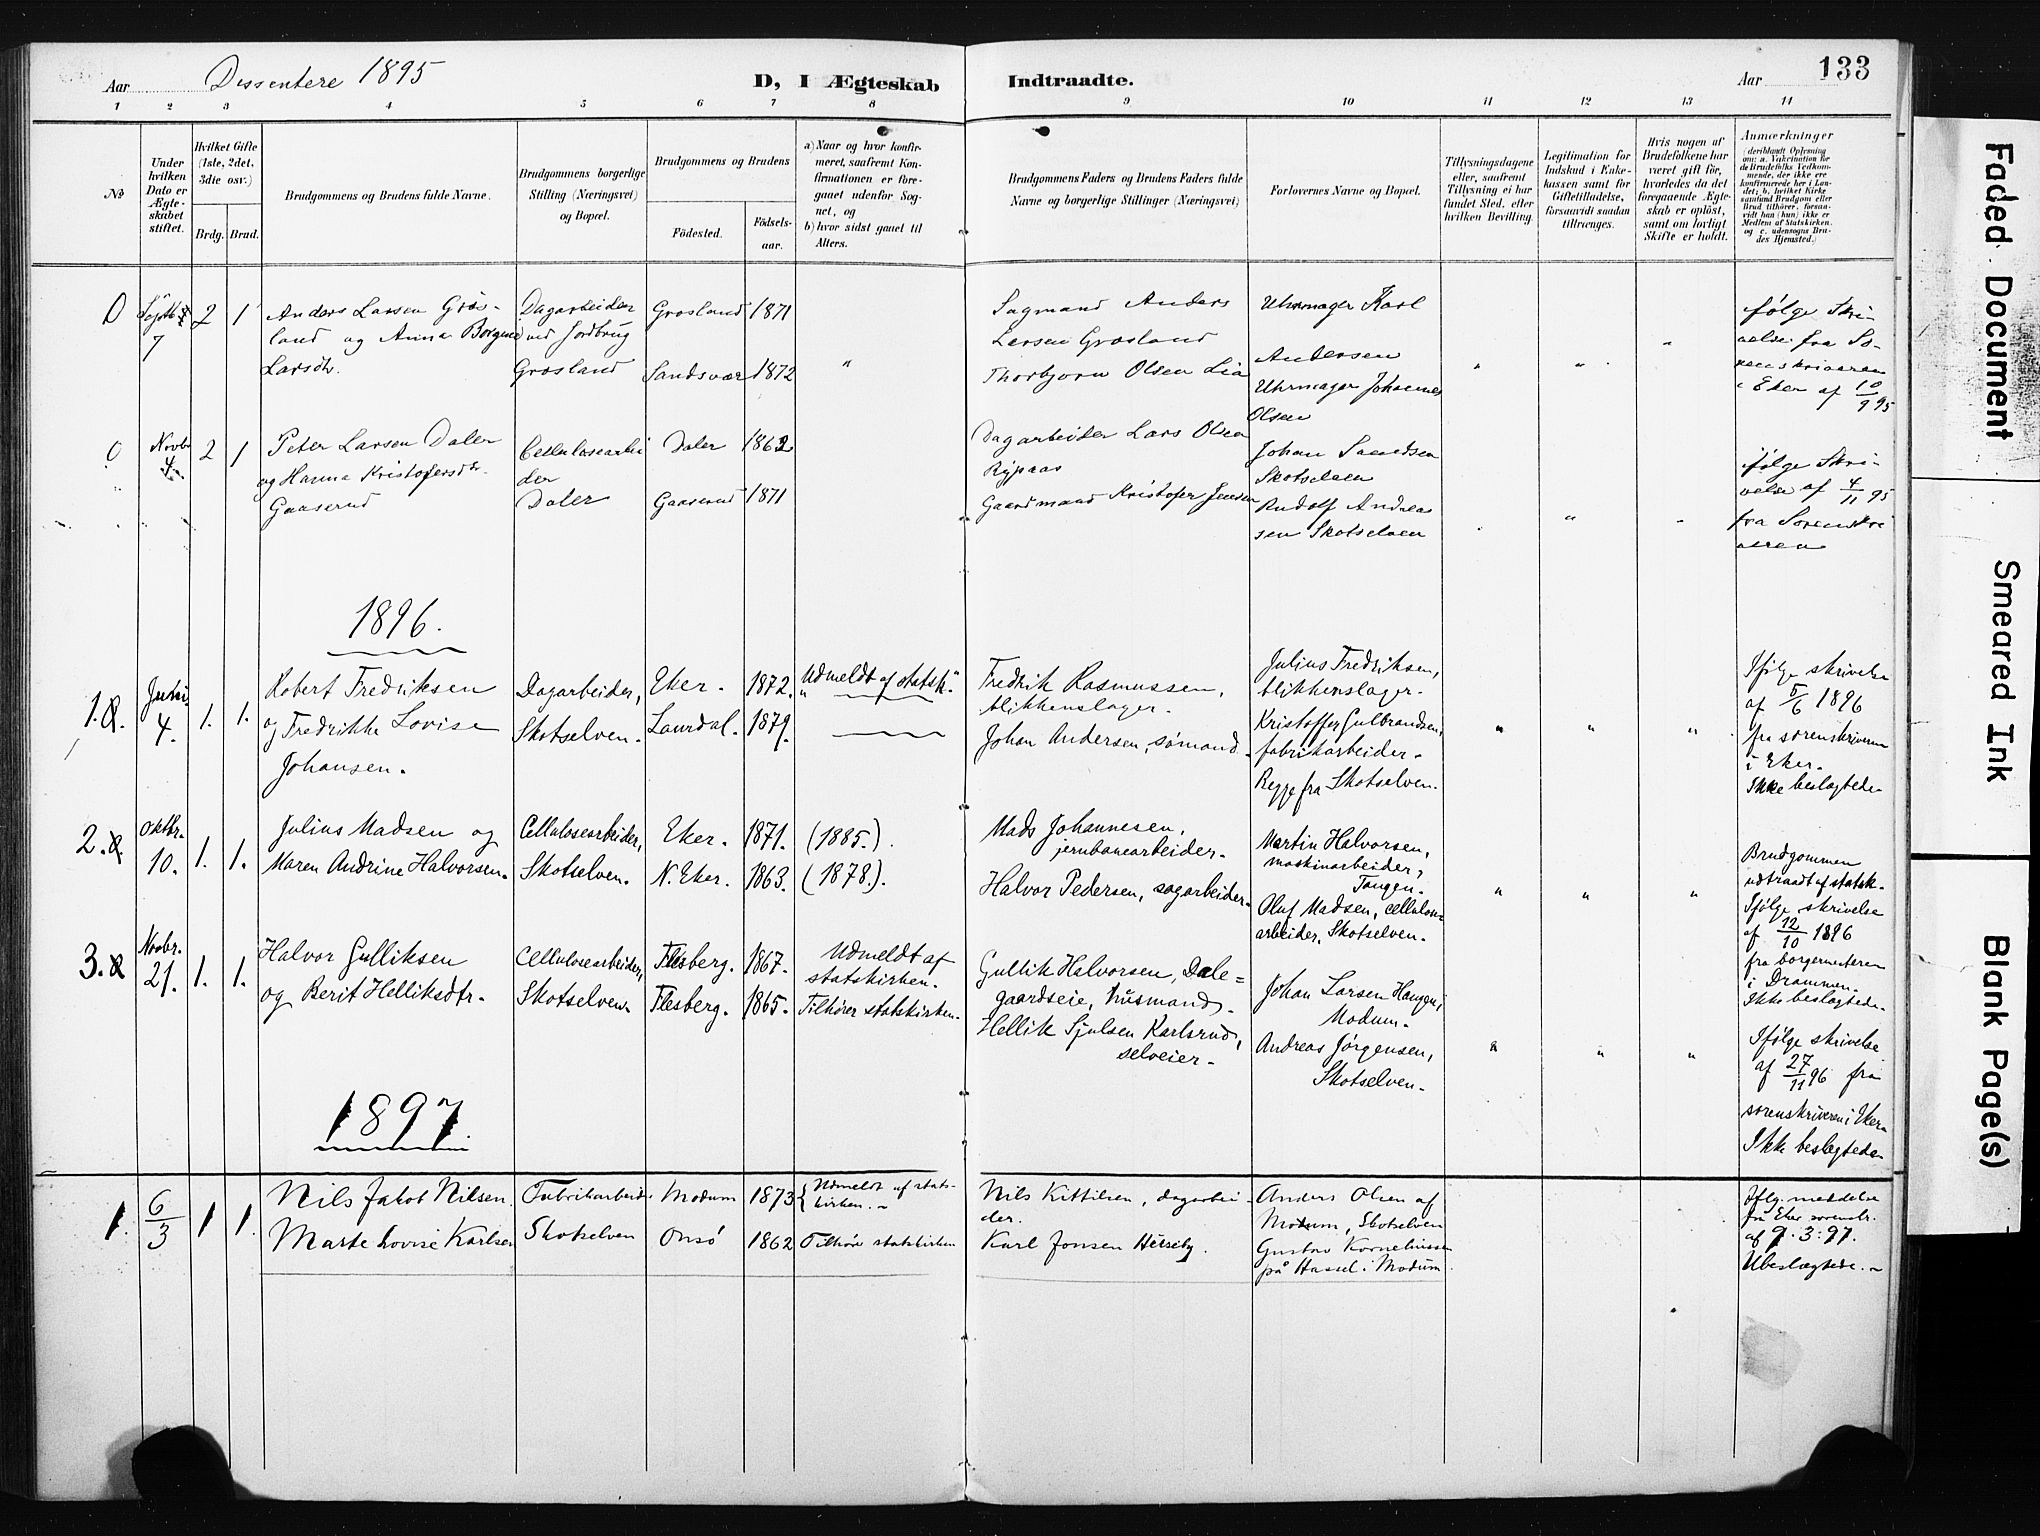 Aar
Dissentere 1895
D, I Ægteskab
Indtraadte.
Aar
133
1 2 3 4 5 6 7 8 9 10 11 12 13 14
No
Under hvilken Dato er Ægteskabet stiftet.
Hvilket Gifte (1ste, 2det, 3die osv.)
Brdg. Brud.
Brudgommens og Brudens fulde Navne.
Brudgommens borgerlige Stilling (Næringsvei) og Bopæl.
Brudgommens og Brudens
Fødested.
Fødselsaar.
a) Naar og hvor konfirmeret, saafremt Konfirmationen er foregaaet udenfor Sognet, og
b) hvor sidst gaaet til Alters.
Brudgommens Faders og Brudens Faders fulde Navne og borgerlige Stillinger (Næringsvei)
Forlovernes Navne og Bopæl.
Tillysningsdagene eller, saafremt Tillysning ei har fundet Sted, efter hvilken Bevilling.
Legitimation for Indskud i Enkekassen samt for Giftetilladelse, forsaavidt saadan tiltrænges.
Hvis nogen af Brudefolkene har været gift før, hvorledes da det foregaaende Ægteskab er opløst, samt om lovligt Skifte er holdt.
Anmærkninger
(deriblandt Oplysning om: a. Vakcination for de Brudefolks Vedkommende, der ikke ere konfirmerede her i Landet; b. hvilket Kirkesamfund Brudgom eller Brud tilhører, forsaavidt han (hun) ikke er Medlem af Statskirken, og c. udensogns Brudes Hjemsted.)
7
2 1
Anders Larsen Gros-
land og Anna Borgine
Larsdtr.
Dagarbeider
ved Jordbrug
Grosland
Grosland 1871
Sandsvær 1872
"
Sagmand Anders
Larsen Grosland
Thorbjørn Olsen Lia
Uhrmager Karl
Andersen
Uhrmager Johannes
Olsen
" " "
ifølge Skri-
velse fra So-
renskriveren
i Eker af 10/9 95
Novbr
4.
2 1
Peter Larsen Daler
og Hanna Kristofersdtr.
Gaaserud
Cellulosearbei
der
Daler
Daler 1862
Gaaserud 1871
Dagarbeider Lars Olsen
Rypaas
Gaardmand Kristofer Jensen
Johan
Skotselven
Rudolf Andrea
sen Skotselven
" "
ifølge Skri-
velse af 4/11 95
fra Sorenskri
veren
1896.
1.
Juni
4.
1. 1.
Robert Fredriksen
og Fredrikke Lovise
Johansen.
Dagarbeider,
Skotselven.
Eker. 1872.
Laurdal. 1879.
"Udmeldt af statsk."
Fredrik Rasmussen,
blikkenslager.
Johan Andersen, sømand.
Julius Fredriksen,
blikkenslager.
Kristoffer Gulbrandsen,
fabrikarbeider.
Begge fra Skotselven.
" " "
Ifølge skrivelse
af 5/6 1896
fra sorenskriveren
i Eker.
Ikke beslægtede.
2.
Oktbr.
10.
1. 1.
Julius Madsen og
Maren Andrine Halvorsen.
Cellulosearbeider,
Skotselven.
Eker. 1871. (1885.)
N. Eker. 1863. (1878.).
Mads Johannesen,
jernbanearbeider.
Halvor Pedersen, sagarbeider.
Martin Halvorsen,
maskinarbeider,
Tangen.
Oluf Madsen, cellulose
arbeider, Skotselven.
" " "
Brudgommen
udtraadt af statsk.
Ifølge skrivelse
af 12/10 1896
fra borgermesteren
i Drammen.
Ikke beslægtede.
3.
Novbr.
21.
1. 1.
Halvor Gulliksen
og Berit Helliksdtr.
Cellulosearbeider,
Skotselven.
Flesberg. 1867.
Flesberg. 1865.
Udmeldt af
statskirken.
Tilhører statskirken.
Gullik Halvorsen, Dale=
gaardseie, husmand.
Hellik Sjulsen Karlsrud,
selveier.
Johan Larsen Haugen,
Modum.
Andreas Jørgensen,
Skotselven.
" " "
Ifølge skrivelse
af 27/11 96 fra
sorenskriveren i Eker.
Ikke beslægtede.
1897.
1.
6/3
1 1.
Nils Jakob Nilsen.
Marte Lovise Karlsen
Fabrikarbeid.
Skotselven
Modum 1873
Onsø 1862
Udmeldt af stats-
kirken.
Tilhører statskirken
Nils Kittilsen, dagarbei-
der.
Karl Jonsen
Anders Olsen af
Modum, Skotselven
Gustav Korneliussen
på Hassel i Modum.
Iflg. meddelse
fra Eker sorenskr.
af 9.3.97.
Ubeslægtede.
Faded Document
Smeared Ink
Blank Page(s)